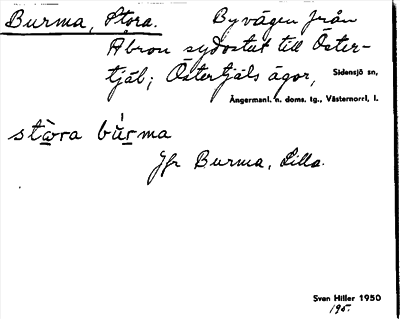 Burma, Stora. Byvägen från
Åbron sydostut till Öster-
tjäl; Östertjäls ägor, Sidensjö sn,
Ångermanl. n. doms. tg., Västernorrl. l.
stɷ̀ra bu̇́rma
Jfr Burma, Lilla.
Sven Hiller 1950
195.